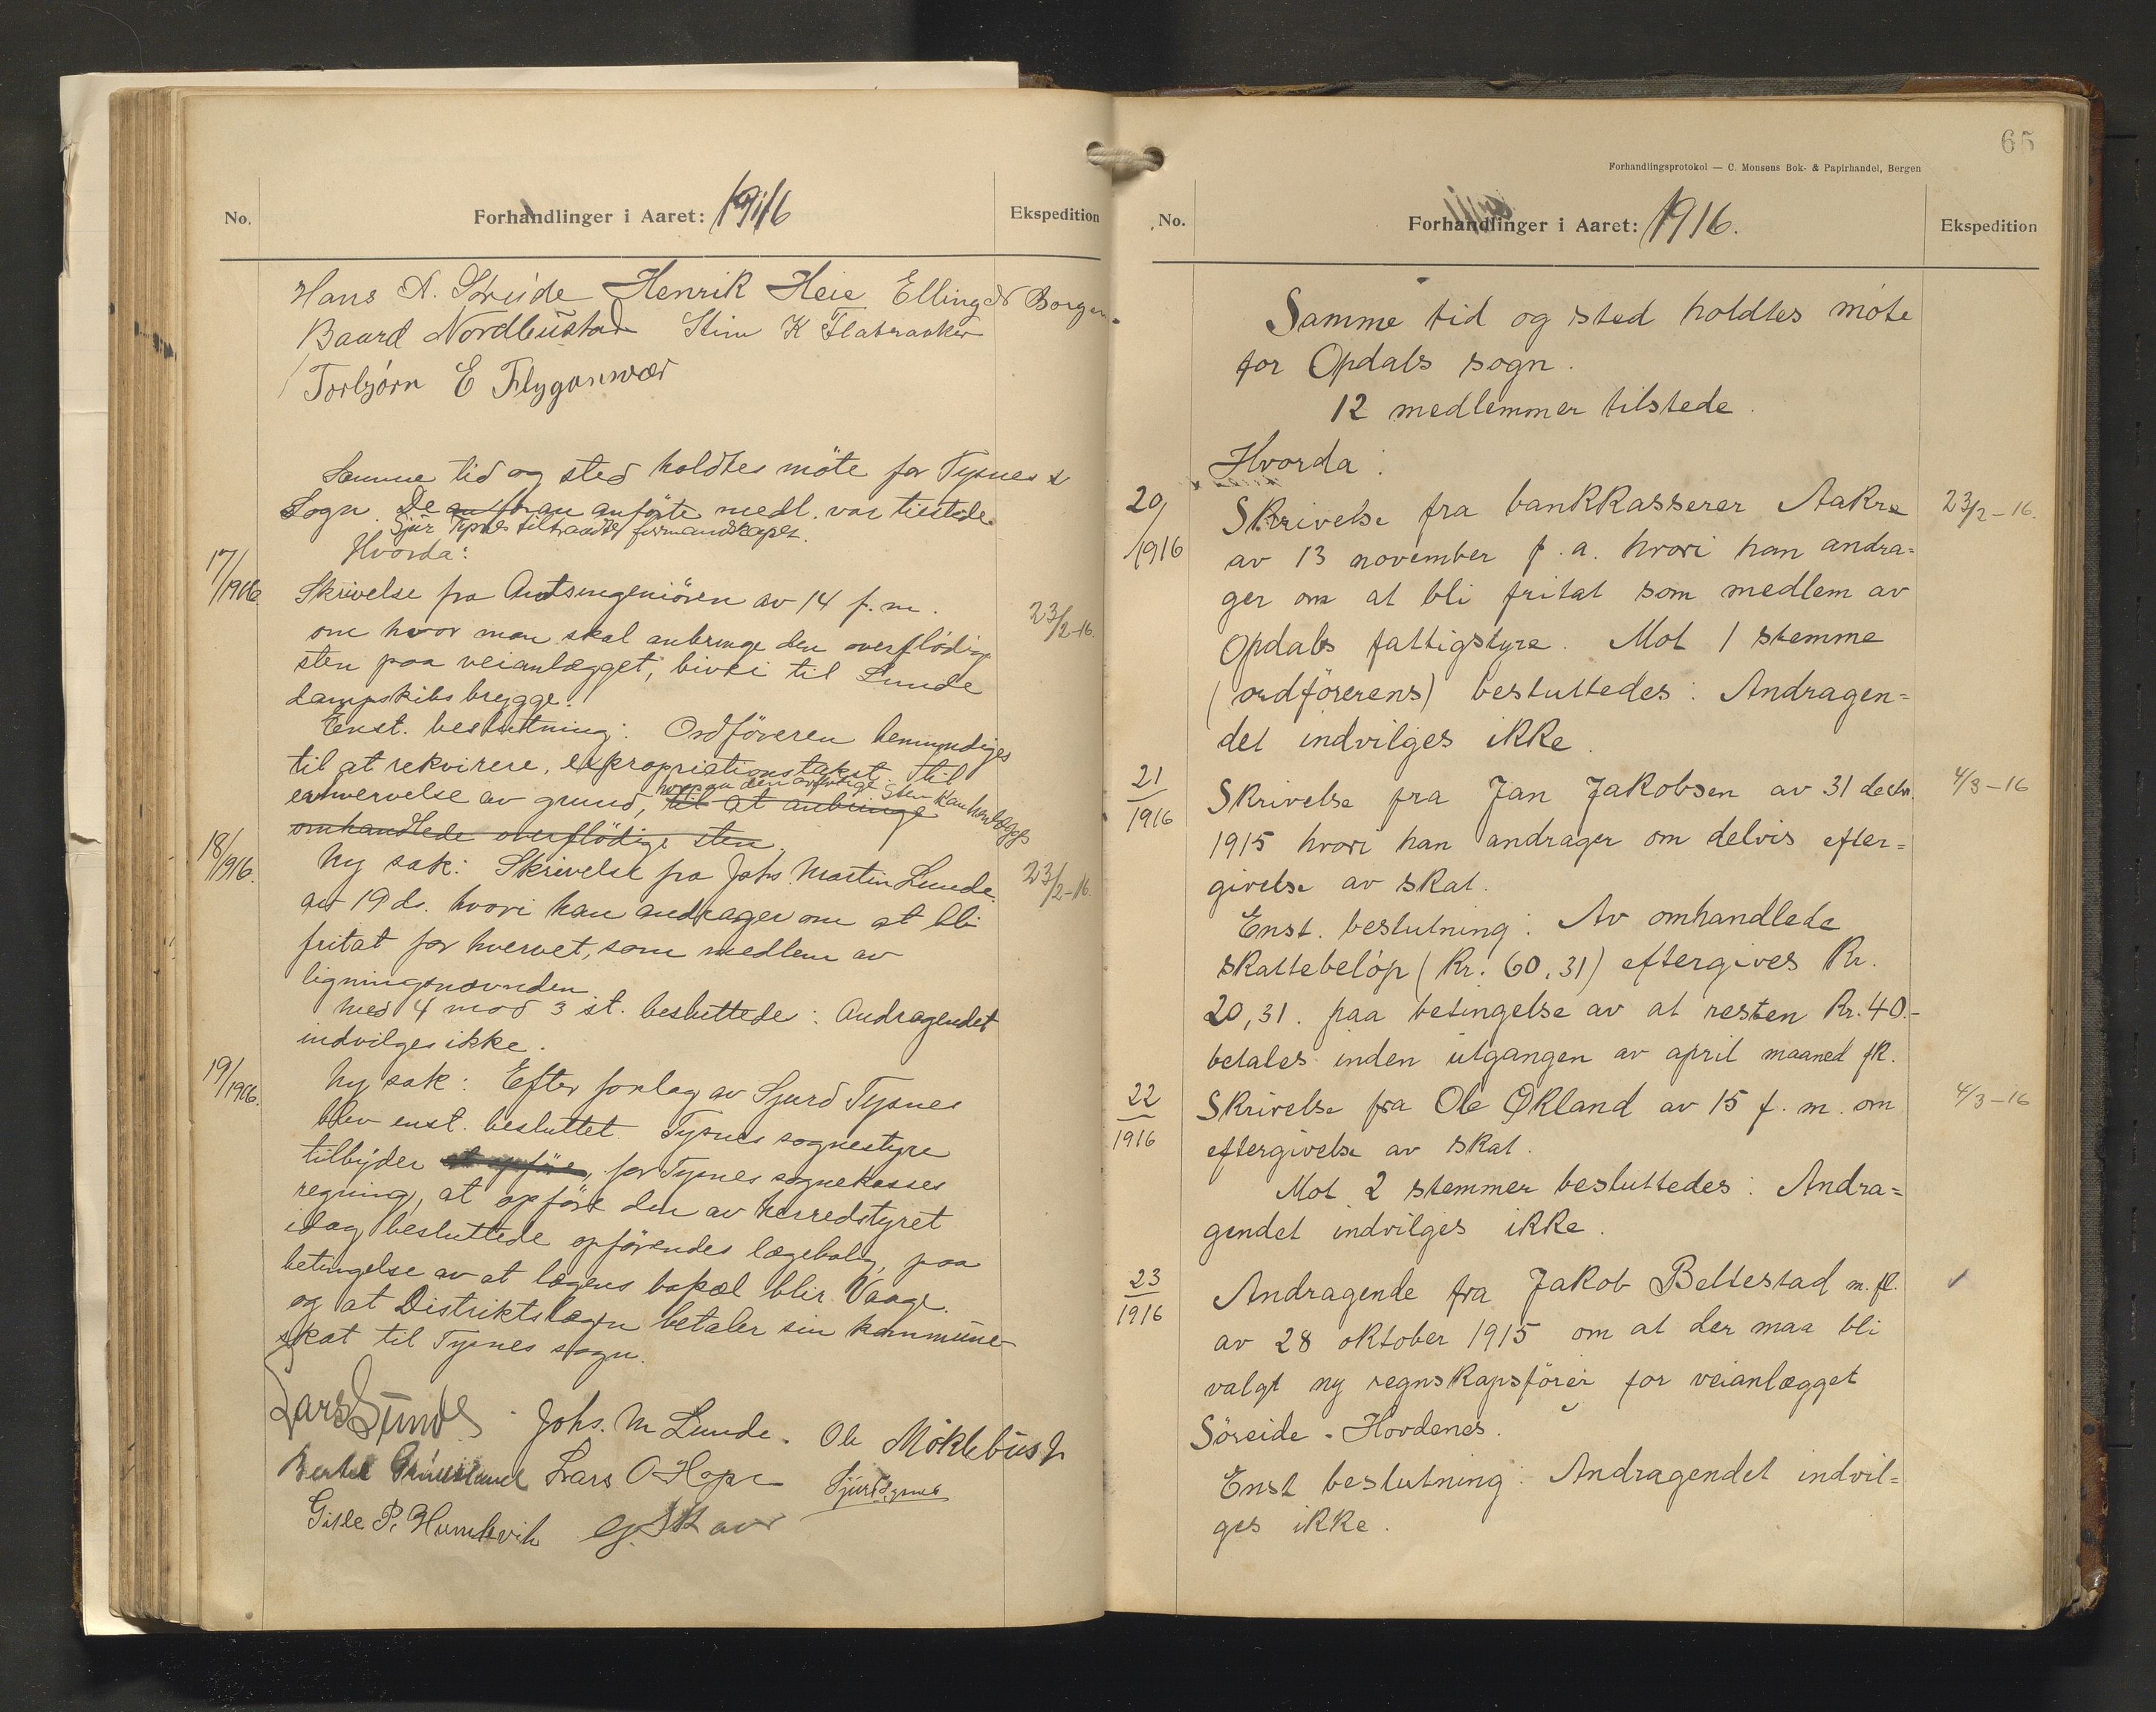 No.
Forhandlinger i Aaret: 1916
Ekspedition
Hans A. Henrik Heie Elling Borgen.
Baard Nordbustad K Flatraaker
Torbjørn E Flygansvær
Samme tid og sted holdtes möte for Tysnes
Sogn. De anförte medl. var tilstede.
Sjur Tysnes tiltraadte formandskapet.
Hvorda:
17/1916.
Skrivelse fra Amtsingeniören av 14 f. m.
23/2-16.
om hvor man skal anbringe den overflödige
sten paa veianlægget, bivei til Lunde
dampskibsbrygge.
Enst. beslutning: Ordföreren bemyndiges
til at rekvirere, expropriationstakst til
hvorpaa den overflödige sten kan henlægges
erhvervelse av grund, til at anbringe
omhandlede overflödige sten.
18/1916.
Ny sak: Skrivelse fra Johs. Martin Lunde
23/2-16.
av 19 ds. hvori han andrager om at bli
fritat for hvervet, som medlem av
ligningsnævnden
Med 4 mod 3 st. besluttede: Andragendet
indvilges ikke.
19/1916.
Ny sak: Efter forslag av Sjurd Tysnes
blev enst. besluttet. Tysnes sognestyre
tilbyder at opföre, for Tysnes sognekasses
regning, at opföre den av herredstyret
idag besluttede opförendes lægebolig, paa
betingelse av at lægens bopæl blir Vaage.
og at Distriktslægen betaler sin kommune-
skat til Tysnes sogn.
Lars Sunde Johs. M Lunde. Ole Möklebust
Lars O Hope Sjur Tysnes
Gisle P. Humlevik
65
Forhandlingsprotokol — C. Monsens Bok- & Papirhandel, Bergen
No.
Forhandlinger i Aaret: 1916.
Ekspedition
Samme tid og sted holdtes möte
for Opdals sogn.
12 medlemmer tilstede.
Hvorda:
20/1916
Skrivelse fra bankkasserer Aakre
23/2-16.
av 13 november f. a. hvori han andra=
ger om at bli fritat som medlem av
Opdals fattigstyre. Mot 1 stemme
(ordförerens) besluttedes: Andragen=
det indvilges ikke.
21
1916
Skrivelse fra Jan Jakobsen av 31 decbr.
4/3-16
1915 hvori han andrager om delvis efter=
givelse av skat.
Enst. beslutning: Av omhandlede
skattebelöp (Kr. 60,31) eftergives Kr.
20,31. paa betingelse av at resten Kr. 40.-
betales inden utgangen av april maaned fk.
22
1916
Skrivelse fra Ole Økland av 15 f. m. om
4/3-16
eftergivelse av skat.
Mot 2 stemmer besluttedes: Andra=
gendet indvilges ikke.
23
1916
Andragende fra Jakob Beltestad m. fl.
av 28 oktober 1915 om at der maa bli
valgt ny regnskapsförer for veianlægget
Söreide - Hovdenes.
Enst beslutning: Andragendet indvil=
ges ikke.